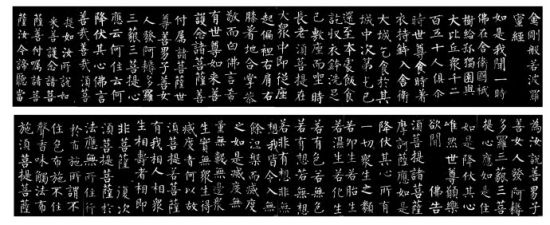 金剛般若波羅
蜜經
如是我聞一時
佛在舍衛國祇
樹給孤獨園與
大比丘眾千二
百五十人俱尒
時世尊食時著
衣持鉢入舍衛
大城乞食於其
城中次第乞已
還至本處飯食
訖收衣鉢洗足
已敷座而坐時
長老須菩提在
大眾中即從座
起偏袒右肩右
膝著地合掌恭
敬而白佛言希
有世尊如來善
護念諸菩薩善
付囑諸菩薩世
尊善男子善女
人發阿耨多羅
三藐三菩提心
應云何住云何
降伏其心佛言
善哉善哉須菩
提如汝所說如
來善護念諸菩
薩善付囑諸菩
薩汝今諦聽當
為汝說善男子
善女人發阿耨
多羅三藐三菩
提心應如是住
如是降伏其心
唯然世尊願樂
欲聞 佛告
須菩提諸菩薩
摩訶薩應如是
降伏其心所有
一切眾生之類
若卵生若胎生
若濕生若化生
若有色若無色
若有想若無想
若非有想非無
想我皆令入無
餘涅槃而滅度
之如是滅度無
量無數無邊眾
生實無眾生得
滅度者何以故
須菩提若菩薩
有我相人相眾
生相壽者相即
非菩薩 復次
須菩提菩薩於
法應無所住行
於布施所謂不
住色布施不住
聲香味觸法布
施須菩提菩薩